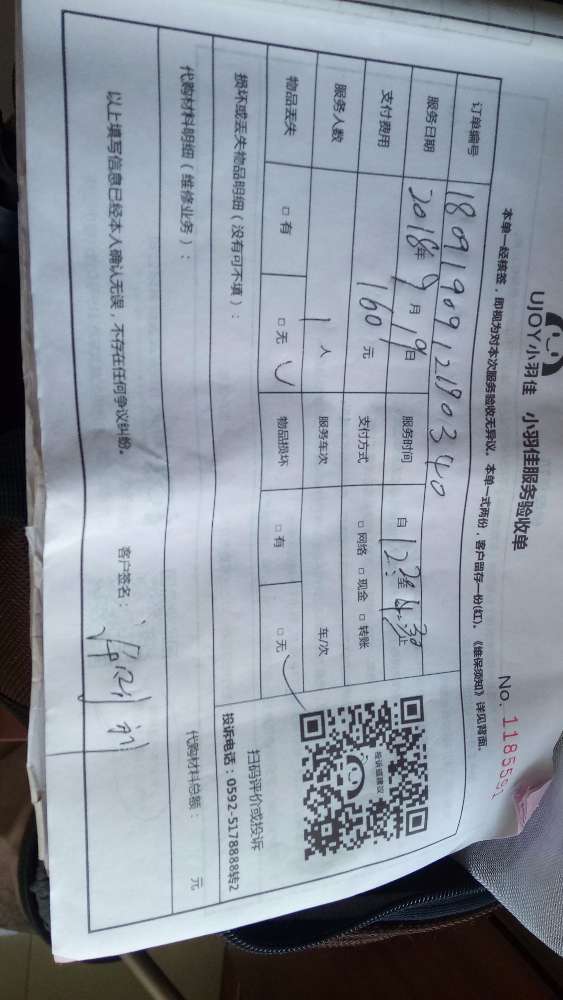 UJOY小羽佳 小羽佳服务验收单
No. 1185591
本单一经核签，即视为对本次服务验收无异议。本单一式两份，客户留存一份(红)。《维保须知》详见背面。
订单编号 1809190912190340
服务日期 2018年9月19日 服务时间 自 至 止
支付费用 160元 支付方式 □ 网络 □ 现金 □ 转账
服务人数 1人 服务车次 车/次
物品丢失 □ 有 □ 无 √ 物品损坏 □ 有 □ 无 √
投诉或建议
扫码评价或投诉
投诉电话：0592-5178888转2
损坏或丢失物品明细（没有可不填）：
代购材料明细（维修业务）： 代购材料总额： 元
以上填写信息已经本人确认无误，不存在任何争议纠纷。 客户签名：